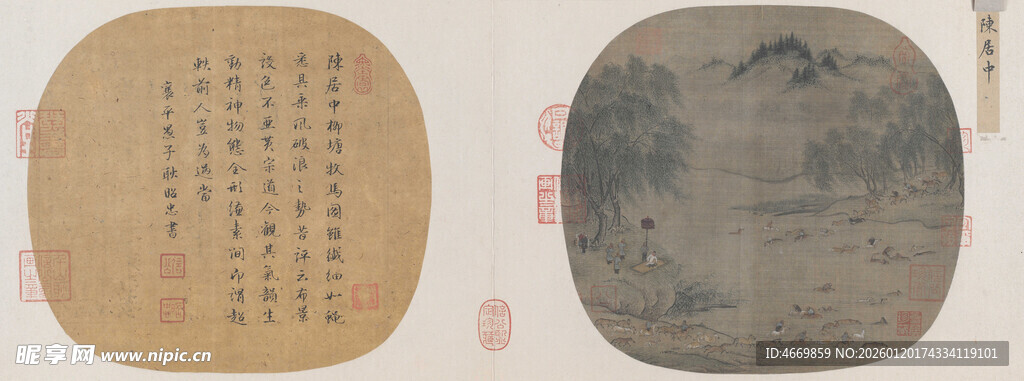 陳居中
陳居中柳塘牧馬圖雖纖細如蠅
悉具乘風破浪之勢昔評云布景
設色不亞黃宗道今觀其氣韻生
動精神物態全形縑素間即謂超
軼前人豈為過當
襄平愚子耿昭忠書
昵享网 www.nipic.cn
ID:4669859 NO:20260120174334119101